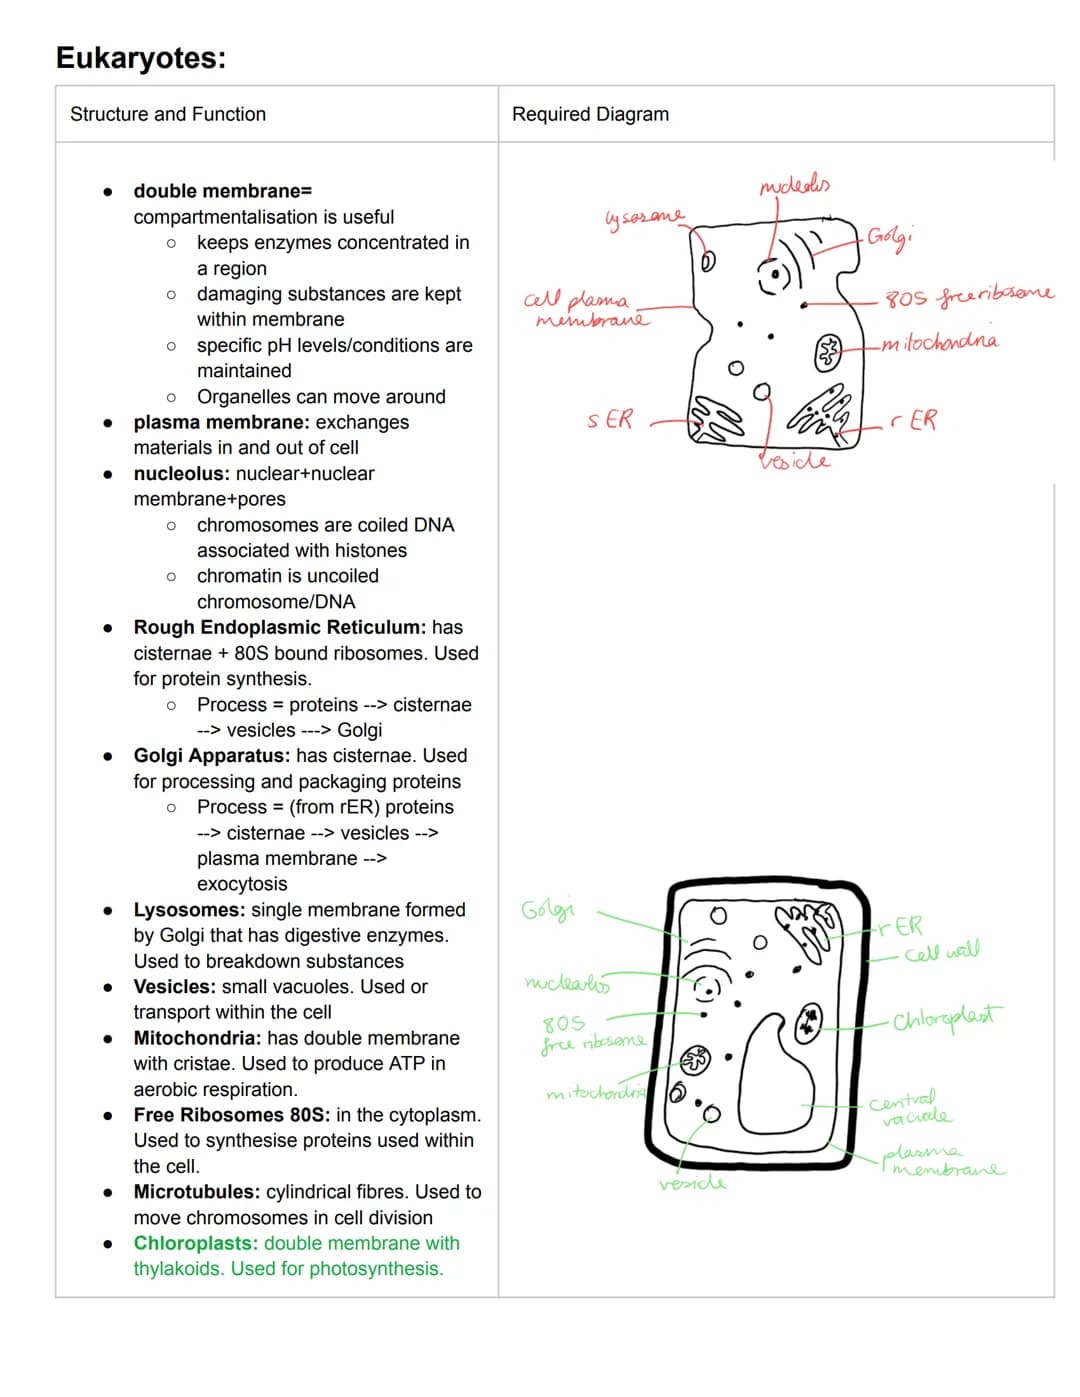 Eukaryotes:
Structure and Function
Required Diagram
● double membrane=
compartmentalisation is useful
○ keeps enzymes concentrated in
a region
○ damaging substances are kept
within membrane
○ specific pH levels/conditions are
maintained
○ Organelles can move around
● plasma membrane: exchanges
materials in and out of cell
● nucleolus: nuclear+nuclear
membrane+pores
○ chromosomes are coiled DNA
associated with histones
○ chromatin is uncoiled
chromosome/DNA
● Rough Endoplasmic Reticulum: has
cisternae + 80S bound ribosomes. Used
for protein synthesis.
○ Process = proteins --> cisternae
--> vesicles ---> Golgi
● Golgi Apparatus: has cisternae. Used
for processing and packaging proteins
○ Process = (from rER) proteins
--> cisternae --> vesicles -->
plasma membrane -->
exocytosis
● Lysosomes: single membrane formed
by Golgi that has digestive enzymes.
Used to breakdown substances
● Vesicles: small vacuoles. Used or
transport within the cell
● Mitochondria: has double membrane
with cristae. Used to produce ATP in
aerobic respiration.
● Free Ribosomes 80S: in the cytoplasm.
Used to synthesise proteins used within
the cell.
● Microtubules: cylindrical fibres. Used to
move chromosomes in cell division
● Chloroplasts: double membrane with
thylakoids. Used for photosynthesis.
nucleolus
lysosome
Golgi
cell plasma
membrane
80S free ribosome
mitochondria
sER
rER
vesicle
Golgi
rER
cell wall
nucleolus
80S
free ribosome
Chloroplast
mitochondria
central
vacuole
plasma
membrane
vesicle